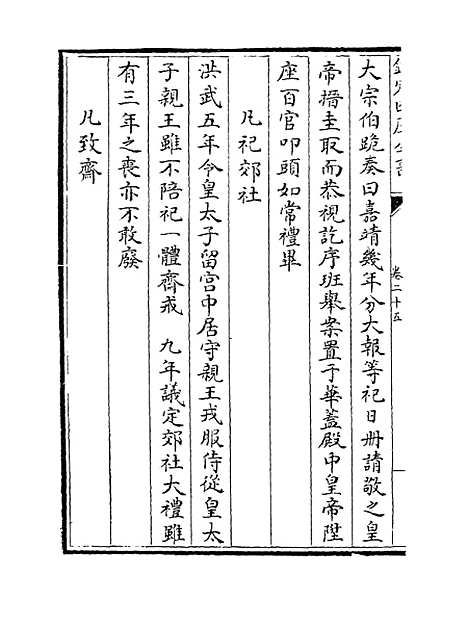 欽定四庫全書
卷二十五
大宗伯跪奏曰嘉靖幾年分大報等祀日册請敬之皇
帝搢圭取而恭視訖序班舉案置于華蓋殿中皇帝陞
座百官叩頭如常禮畢
凡祀郊社
洪武五年令皇太子留宫中居守親王戎服侍從皇太
子親王雖不陪祀一體齊戒　九年議定郊社大禮雖
有三年之喪亦不敢廢
凡致齋